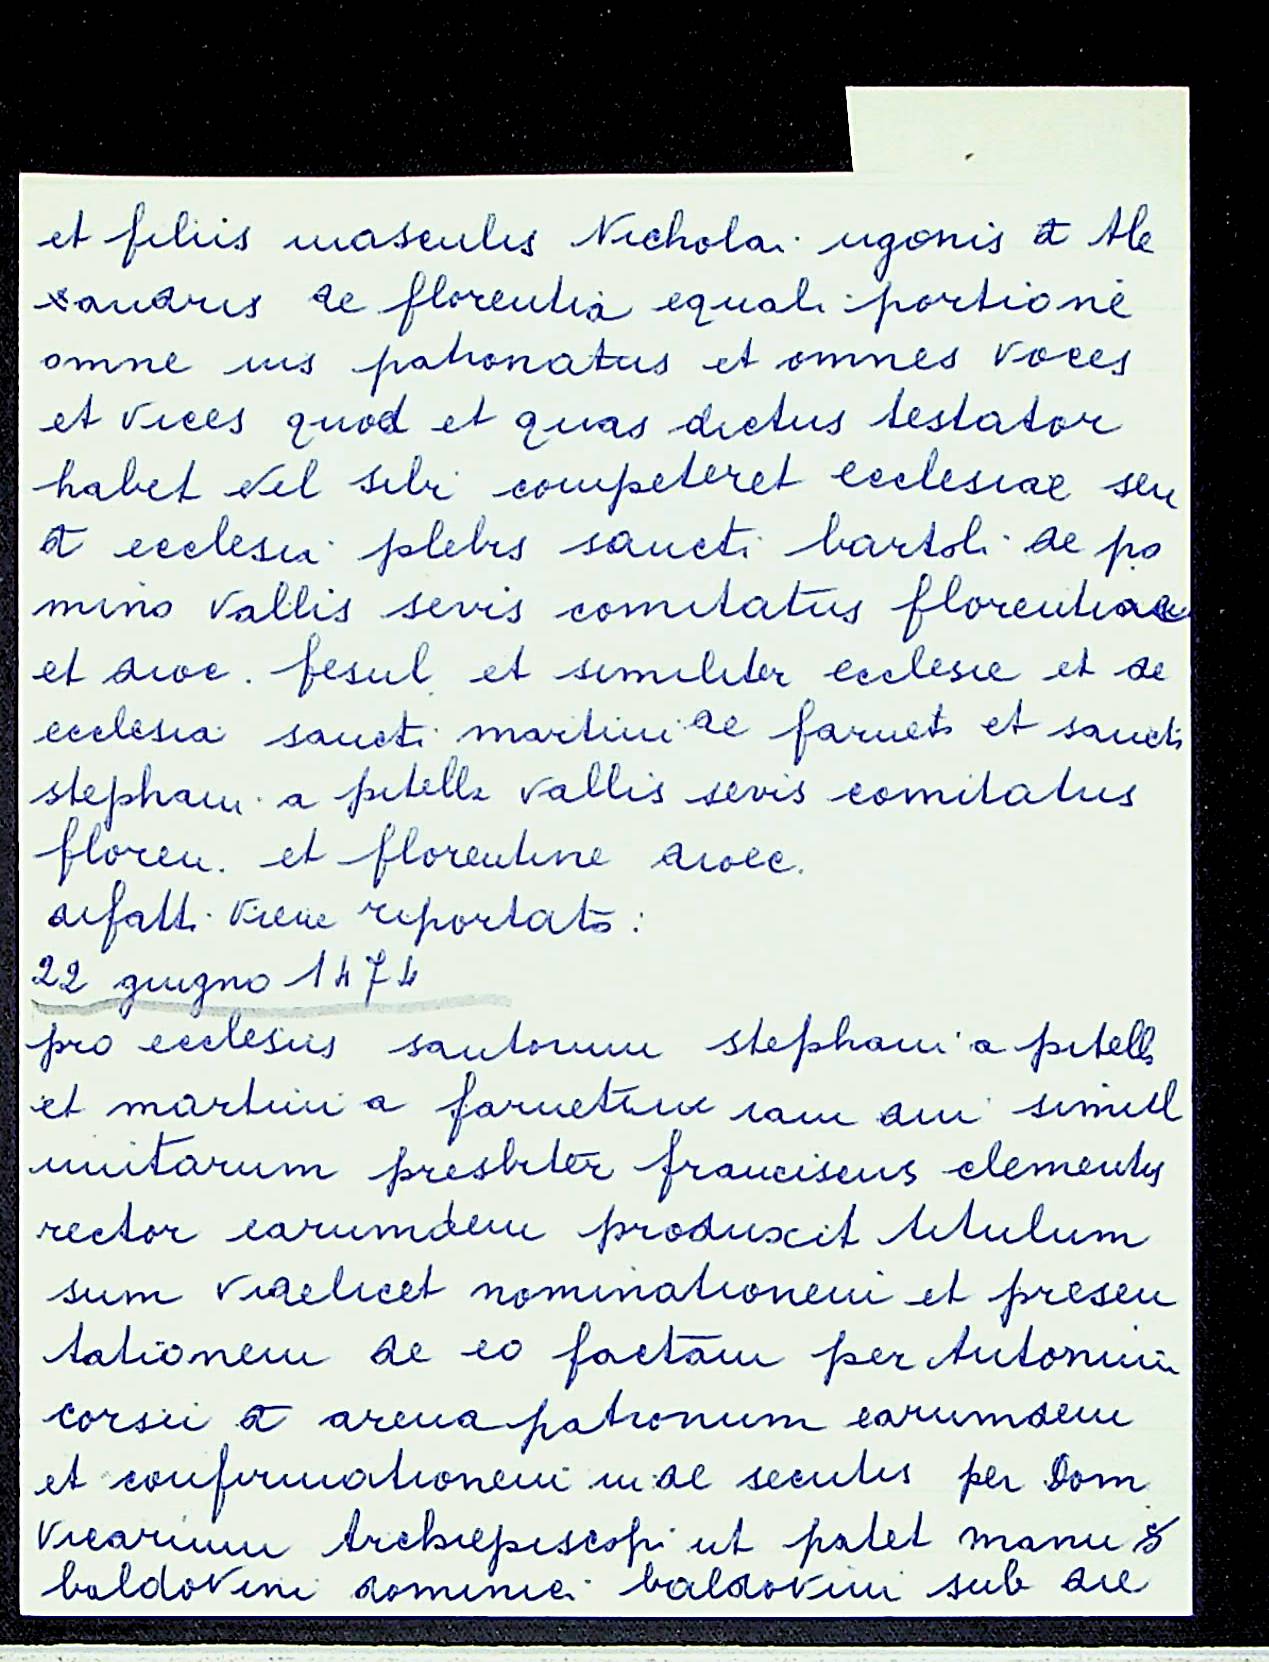 et filiis masculis Nicholai ugonis et Ale
xandris de florentia equali portione
omne ius patronatus et omnes voces
et vices quod et quas dictus testator
habet vel sibi competeret ecclesiae seu
et ecclesia plebis sancti bartoli de po
mino vallis sevis comitatus florentiae
et dioc. fesul. et similiter ecclesie et de
ecclesia sancti martini de farneto et sancti
stephani a pitella vallis sevis comitatus
floren. et florentine dioec.
difatti viene riportato:
22 giugno 1474
pro ecclesiis santorum stephani a pitella
et martini a farneto iam diu simul
unitarum presbiter franciscus clementis
rector earumdem produxit titulum
sum videlicet nominationem et presen
tationem de eo factam per Antonium
corsii et arena patronum earumdem
et confirmationem inde secutis per Dom
vicarium Archiepiscopi ut patet manu S
baldovini dominici baldovini sub die